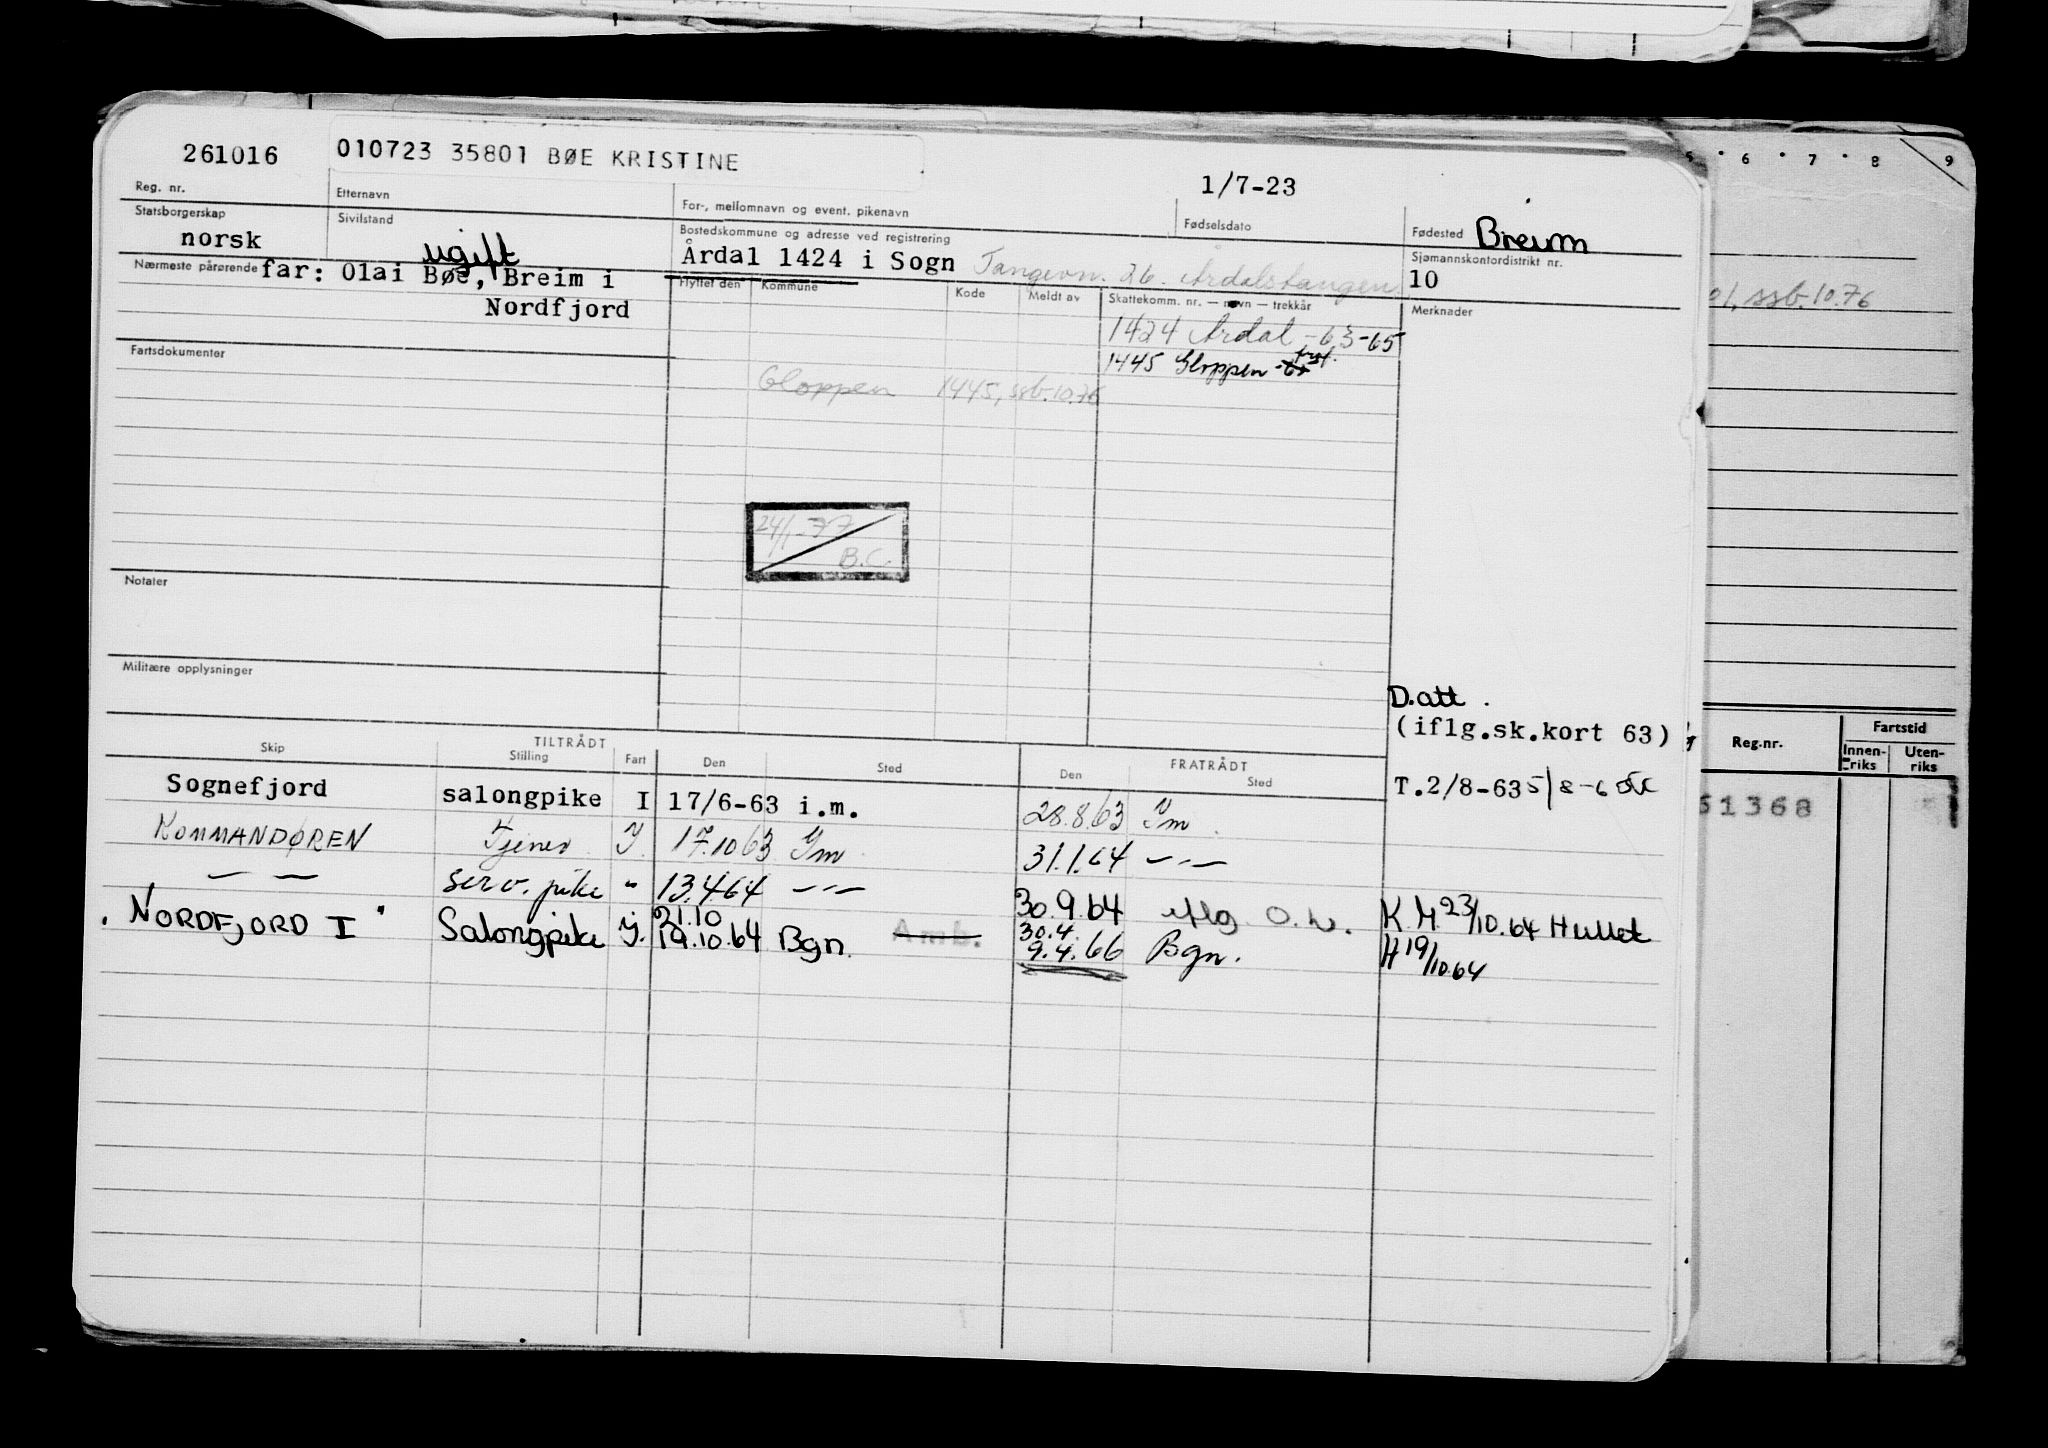 261016 010723 35801 BØE KRISTINE 1/7-23
Reg. nr. Etternavn For-, mellomnavn og event. pikenavn Fødselsdato Fødested Breim
Statsborgerskap Sivilstand Bostedskommune og adresse ved registrering Sjømannskontordistrikt nr.
norsk ugift Årdal 1424 i Sogn Tangevn. 26. Årdalstangen 10
Nærmeste pårørende far: Olai Bøe, Breim i
Nordfjord
Flyttet den Kommune Kode Meldt av Skattekomm. nr. — navn — trekkår Merknader
1424 Årdal -63-65
1445 Gloppen
Fartsdokumenter
Gloppen 1445, ssb.10.76
24/1-77
B.C.
Notater
Militære opplysninger
D.att.
(iflg.sk.kort 63)
TILTRÅDT FRATRÅDT
Skip Stilling Fart Den Sted Den Sted
T.2/8-63 5/8-65
Sognefjord salongpike I 17/6-63 i.m. 28.8.63 Im.
KOMMANDØREN Tjener I. 17.10 63 Im 31.1.64 — " —
— — serv. pike " 13.4.64 — " — 30.9.64 iflg. O.L. K.M. 23/10.64 Hullet
"NORDFJORD I" Salongpike I. 21.10 19.10.64 Bgn. Amb. 30.4. 9.4.66 Bgn. H 19/10.64
5 6 7 8 9
01, ssb.10.76
Reg.nr. Fartstid
Innen-riks Uten-riks
61368